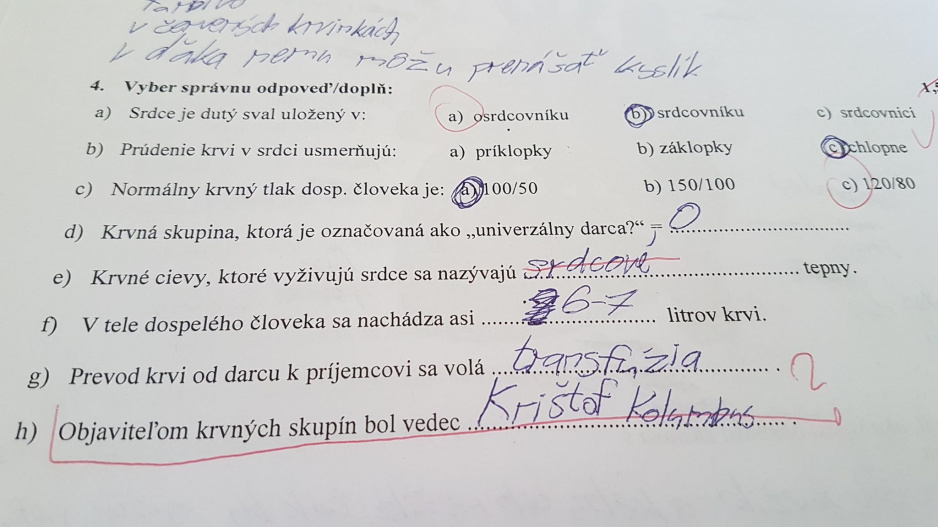 farbivo
v červených krvinkách
v ďaka nemu môžu prenášať kyslík
4. Vyber správnu odpoveď/doplň:
a) Srdce je dutý sval uložený v: a) osrdcovníku b) srdcovníku c) srdcovnici
b) Prúdenie krvi v srdci usmerňujú: a) príklopky b) záklopky c) chlopne
c) Normálny krvný tlak dosp. človeka je: a) 100/50 b) 150/100 c) 120/80
d) Krvná skupina, ktorá je označovaná ako „univerzálny darca?“ = 0
e) Krvné cievy, ktoré vyživujú srdce sa nazývajú srdcové tepny.
f) V tele dospelého človeka sa nachádza asi 6-7 litrov krvi.
g) Prevod krvi od darcu k príjemcovi sa volá transfúzia. 2
h) Objaviteľom krvných skupín bol vedec Krištof Kolumbus.